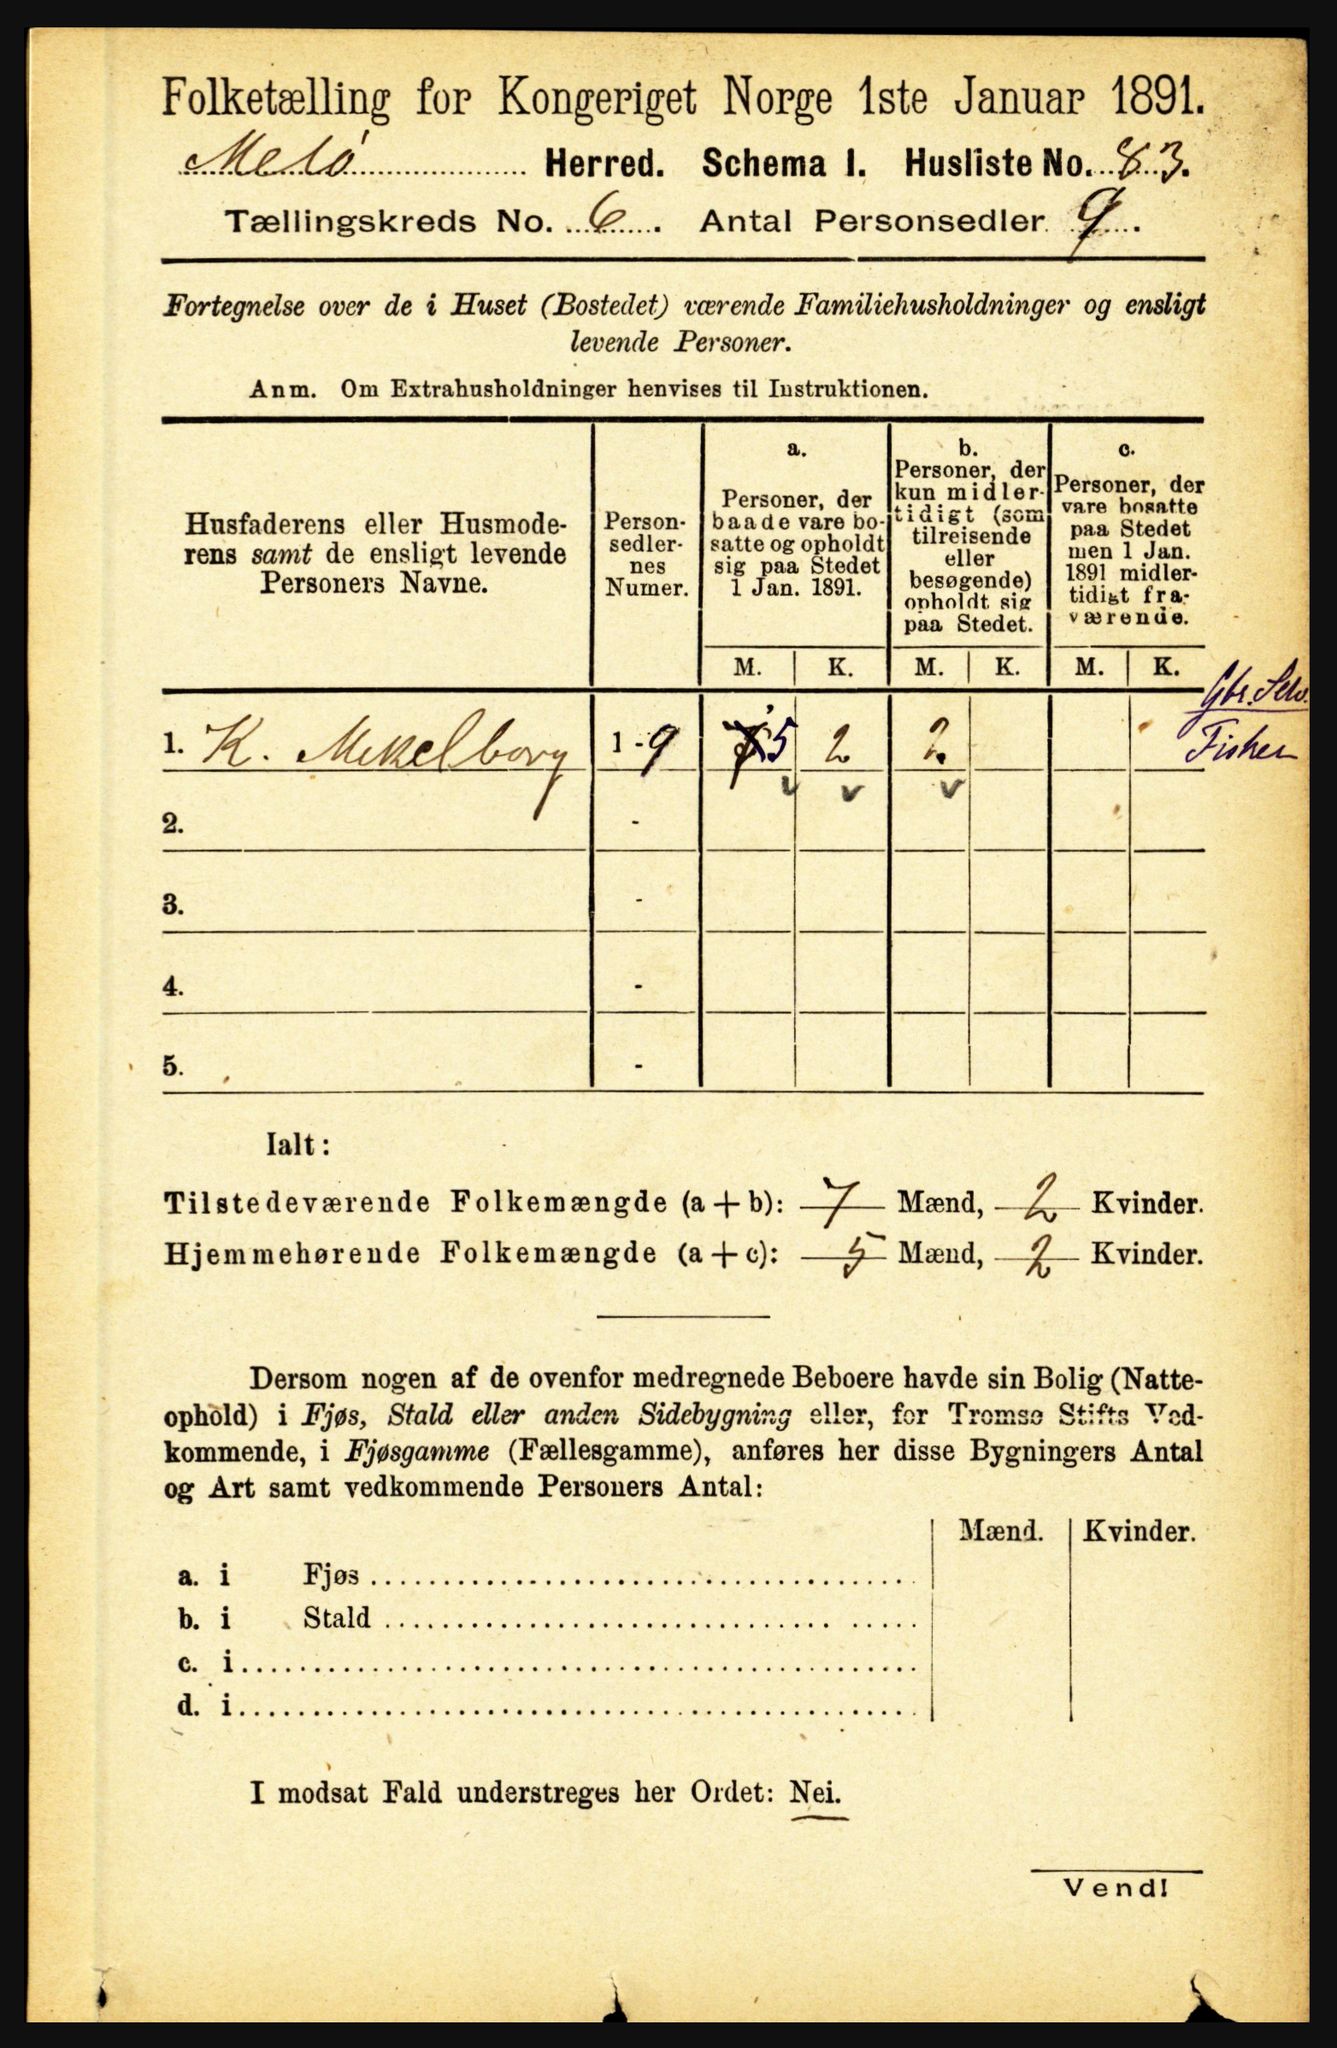 Folketælling for Kongeriget Norge 1ste Januar 1891.
Melø Herred. Schema I. Husliste No. 83.
Tællingskreds No. 6. Antal Personsedler 9.
Fortegnelse over de i Huset (Bostedet) værende Familiehusholdninger og ensligt
levende Personer.
Anm. Om Extrahusholdninger henvises til Instruktionen.
Husfaderens eller Husmode-
rens samt de ensligt levende
Personers Navne.
Person-
sedler-
nes
Numer.
a.
Personer, der
baade vare bo-
satte og opholdt
sig paa Stedet
1 Jan. 1891.
b.
Personer, der
kun midler-
tidigt (som
tilreisende
eller
besøgende)
opholdt sig
paa Stedet.
c.
Personer, der
vare bosatte
paa Stedet
men 1 Jan.
1891 midler-
tidigt fra-
værende.
M. K. M. K. M. K.
Gbr. Selv.
1. K. Mekelborg 1 - 9 5 2 2 Fisker
2. -
3. -
4. -
5. -
Ialt:
Tilstedeværende Folkemængde (a + b): 7 Mænd, 2 Kvinder.
Hjemmehørende Folkemængde (a + c): 5 Mænd, 2 Kvinder.
Dersom nogen af de ovenfor medregnede Beboere havde sin Bolig (Natte-
ophold) i Fjøs, Stald eller anden Sidebygning eller, for Tromsø Stifts Ved-
kommende, i Fjøsgamme (Fællesgamme), anføres her disse Bygningers Antal
og Art samt vedkommende Personers Antal:
Mænd. Kvinder.
a. i Fjøs
b. i Stald
c. i
d. i
I modsat Fald understreges her Ordet: Nei.
Vend!